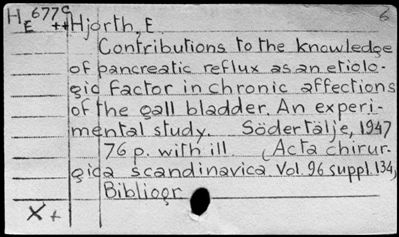 HE 677c ++ Hjorth, E. 6
Contributions to the knowledge
of pancreatic reflux as an etiolo-
gic factor in chronic affections
of the gall bladder. An experi-
mental study. Södertälje, 1947
76 p. with ill. (Acta chirur-
gica scandinavica. Vol. 96 suppl. 134)
Bibliogr
X+